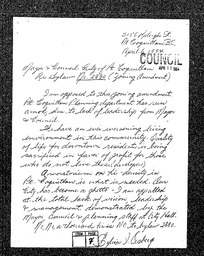 2116 Raleigh St
Pt Coquitlam B.C.
April 6, 1994
COUNCIL
APR 11 1994
Mayor & Council City of Pt Coquitlam
Re: Bylaw No. 2880 (Zoning Amendment)
I am opposed to this zoning amendment.
Pt Coquitlam Planning department has run
amok, due to lack of leadership from Mayor
& Council.
We have an ever worsening living
environment in this community. Quality
of life for downtown residents is being
sacrificed in favor of profit for those
who do not live there.
A moratorium on the density in
Pt Coquitlam is what is needed. Our
City has become a ghetto - I am appalled
at the total lack of vision, leadership
& management demonstrated by the
Mayor, Council & planning staff at City Hall.
No. No a thousand times NO to bylaw 2880.